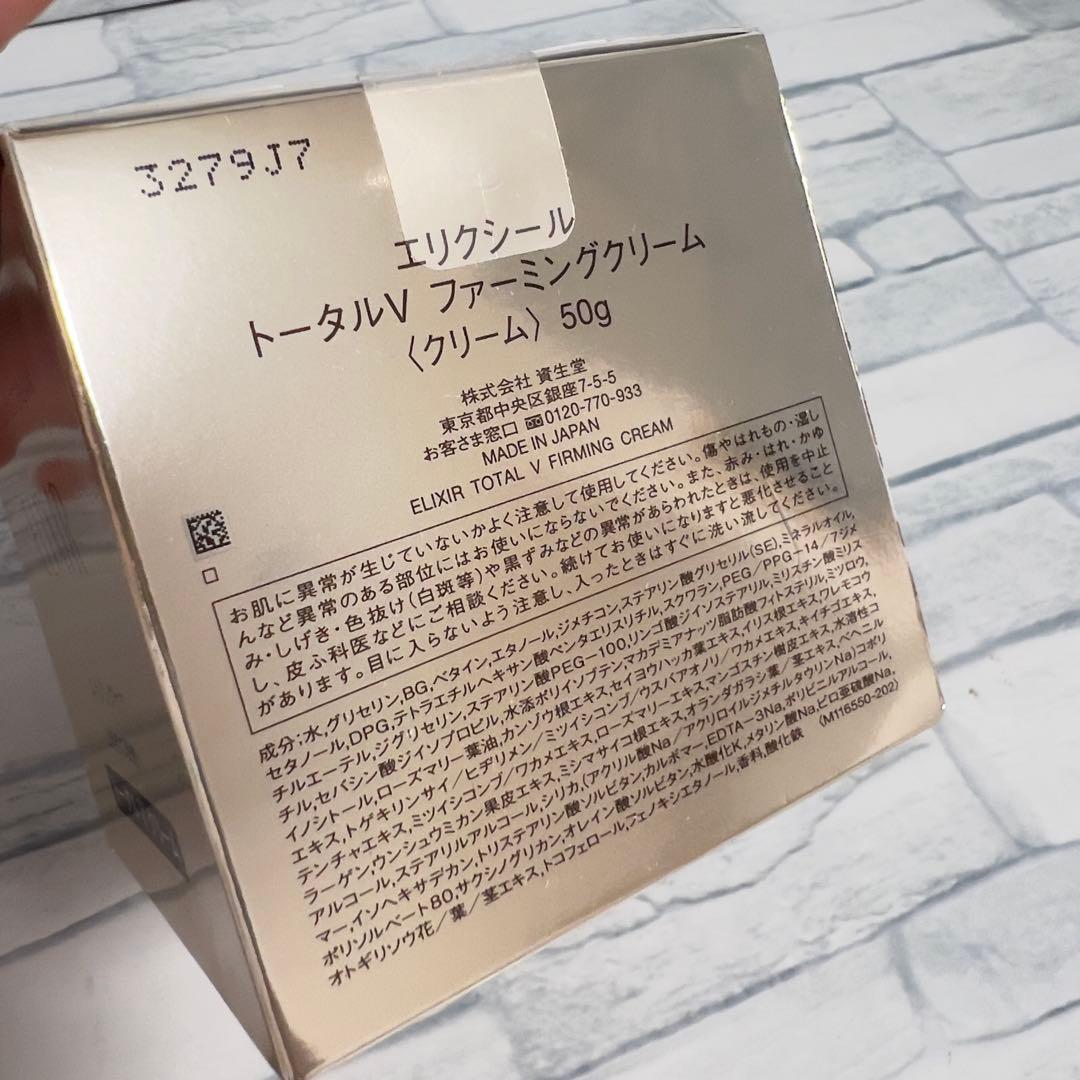 3279J7
エリクシール
トータルV ファーミングクリーム
〈クリーム〉 50g
株式会社 資生堂
東京都中央区銀座7-5-5
お客さま窓口 0120-770-933
MADE IN JAPAN
ELIXIR TOTAL V FIRMING CREAM
お肌に異常が生じていないかよく注意して使用してください。傷やはれもの・湿し
んなど異常のある部位にはお使いにならないでください。また、赤み・はれ・かゆ
み・しげき・色抜け(白斑等)や黒ずみなどの異常があらわれたときは、使用を中止
し、皮ふ科医などにご相談ください。続けてお使いになりますと悪化させること
があります。目に入らないよう注意し、入ったときはすぐに洗い流してください。
成分:水,グリセリン,BG,ベタイン,エタノール,ジメチコン,ステアリン酸グリセリル(SE),ミネラルオイル,
セタノール,DPG,テトラエチルヘキサン酸ペンタエリスリチル,スクワラン,PEG/PPG-14/7ジメ
チルエーテル,ジグリセリン,ステアリン酸PEG-100,リンゴ酸ジイソステアリル,ミリスチン酸ミリス
チル,セバシン酸ジイソプロピル,水添ポリイソブテン,マカデミアナッツ脂肪酸フィトステリル,ミツロウ,
イノシトール,ローズマリー葉油,カンゾウ根エキス,セイヨウハッカ葉エキス,イリス根エキス,ワレモコウ
エキス,トゲキリンサイ/ヒヂリメン/ミツイシコンブ/ウスバアオノリ/ワカメエキス,キイチゴエキス,
テンチャエキス,ミツイシコンブ/ワカメエキス,ローズマリーエキス,マンゴスチン樹皮エキス,水溶性コ
ラーゲン,ウンシュウミカン果皮エキス,ミシマサイコ根エキス,オランダガラシ葉/茎エキス,ベヘニル
アルコール,ステアリルアルコール,シリカ,(アクリル酸Na/アクリロイルジメチルタウリンNa)コポリ
マー,イソヘキサデカン,トリステアリン酸ソルビタン,カルボマー,EDTA-3Na,ポリビニルアルコール,
ポリソルベート80,サクシノグリカン,オレイン酸ソルビタン,水酸化K,メタリン酸Na,ピロ亜硫酸Na,
オトギリソウ花/葉/茎エキス,トコフェロール,フェノキシエタノール,香料,酸化鉄 (M116550-202)